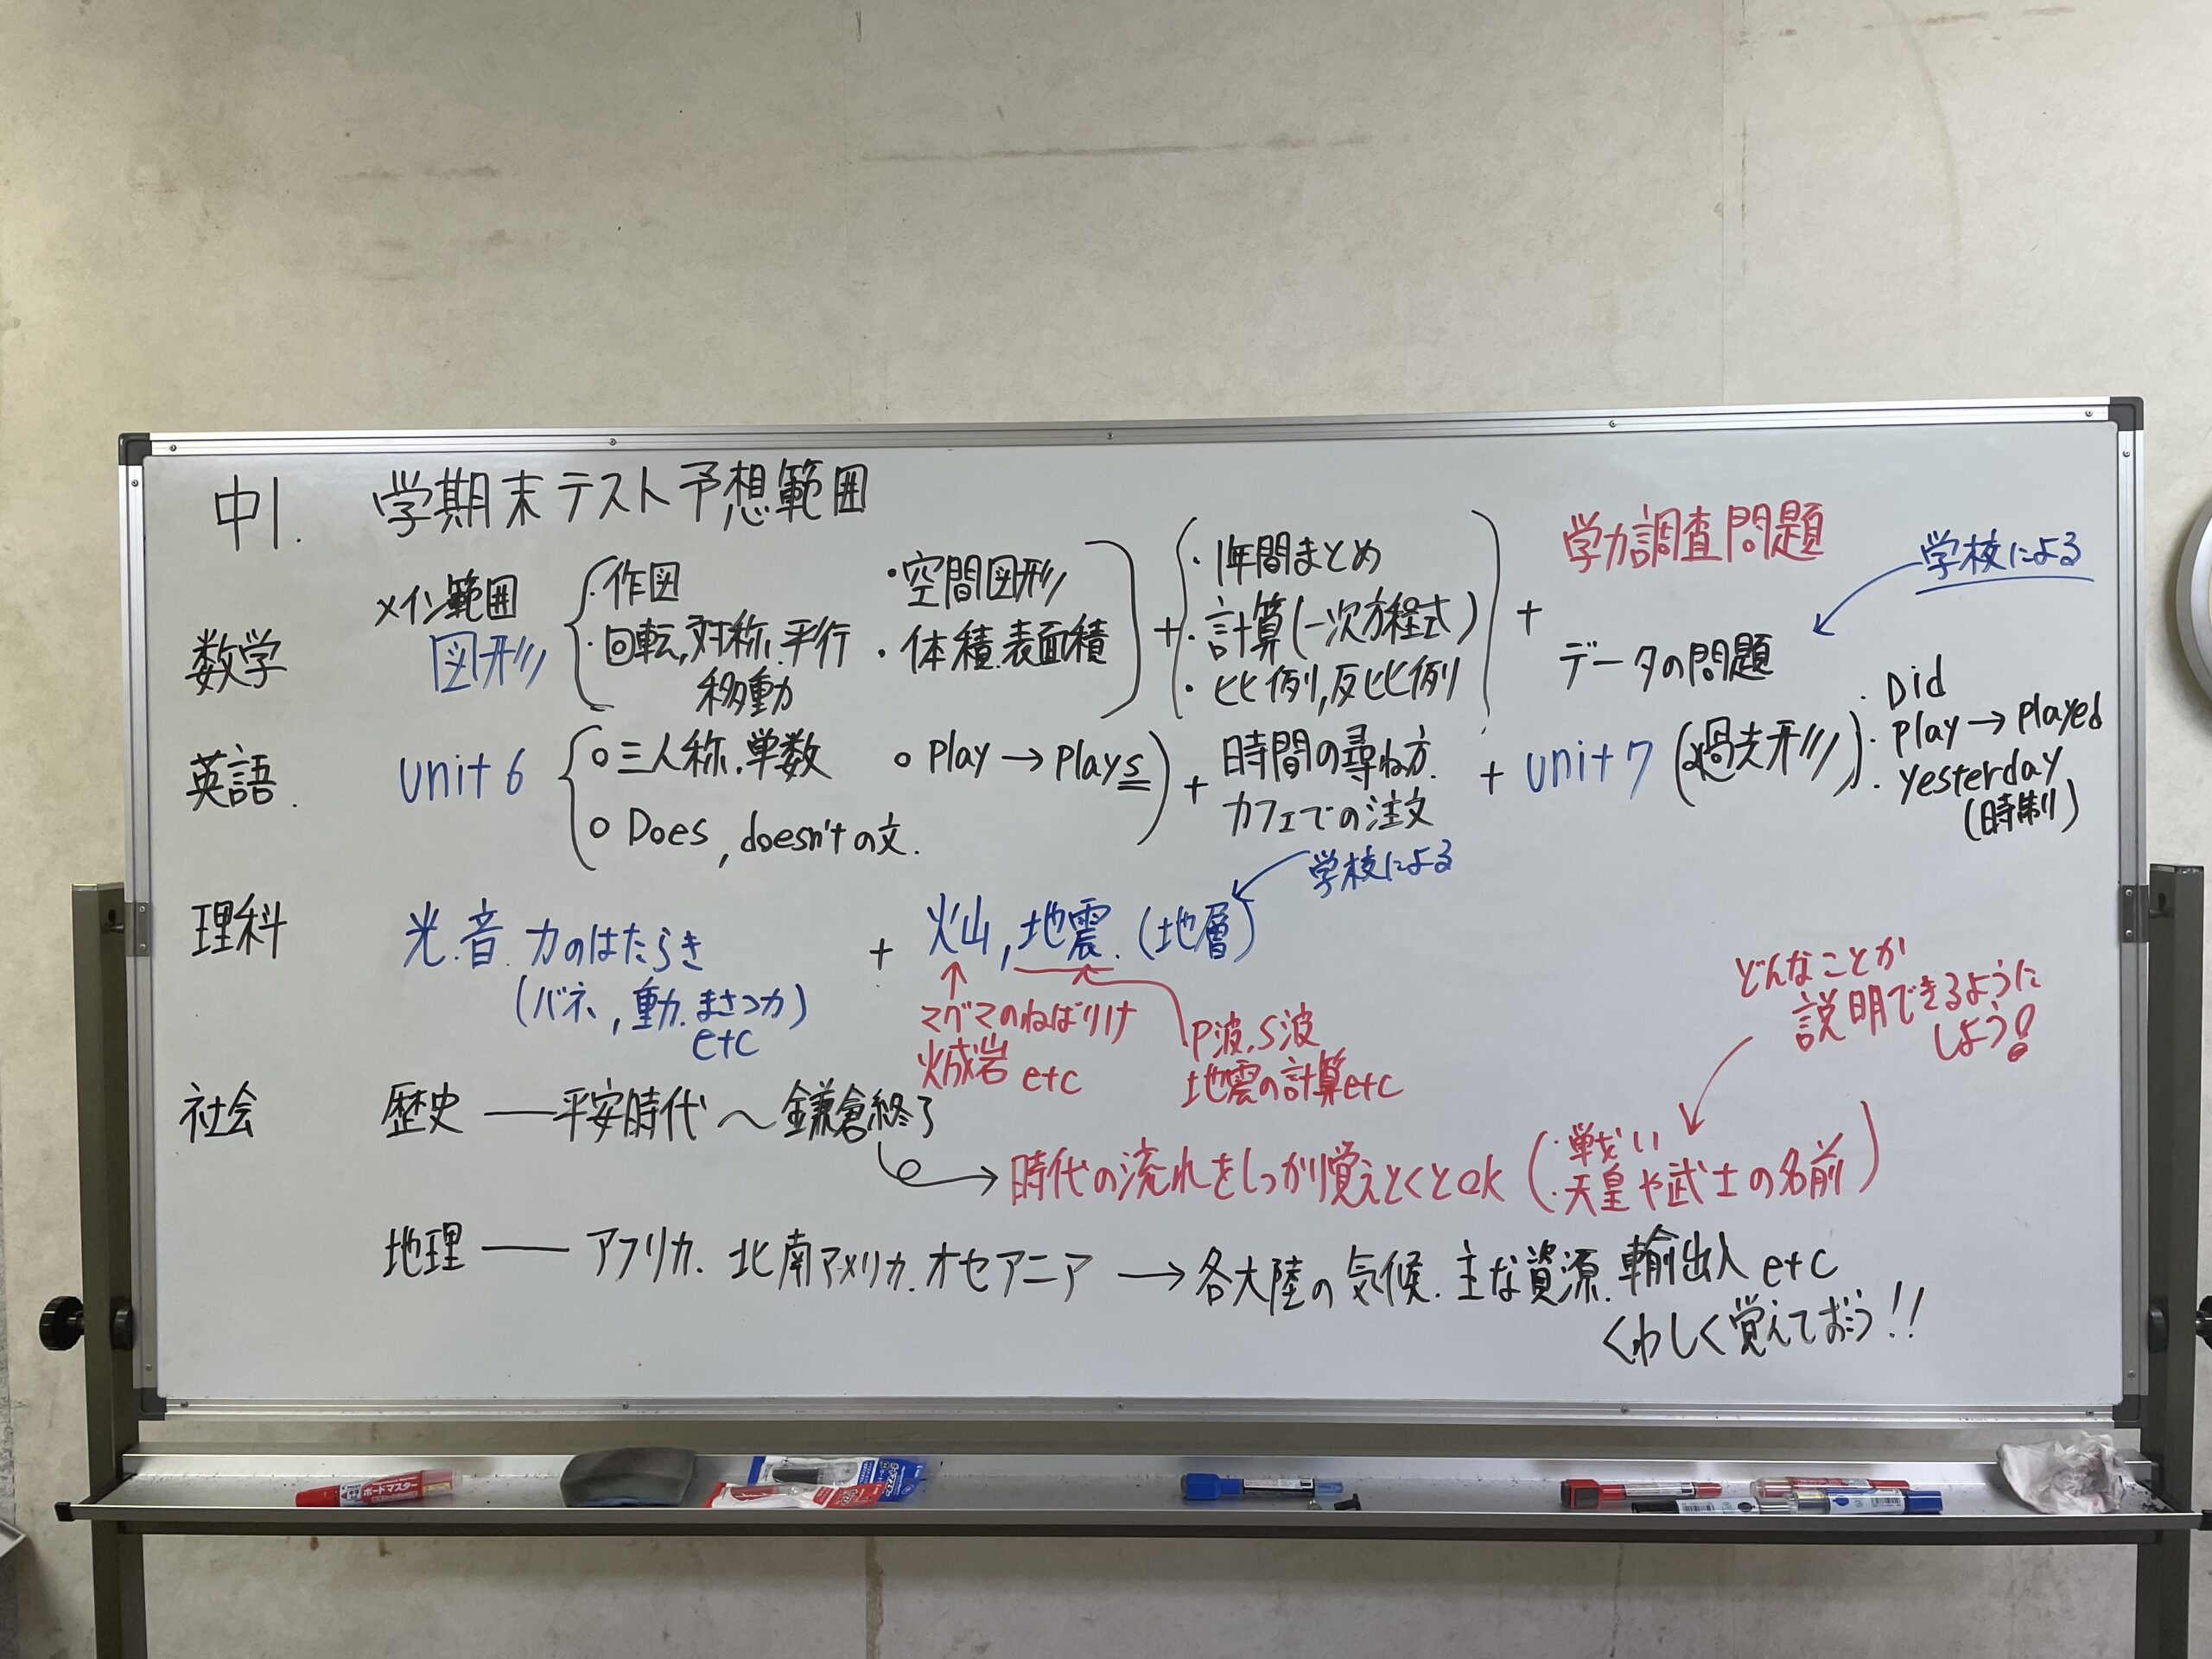 中1. 学期末テスト予想範囲
数学
メイン範囲
図形
・作図
・回転,対称.平行
移動
・空間図形
・体積.表面積
+
・1年間まとめ
・計算(一次方程式)
・比例,反比例
+
学力調査問題
データの問題
学校による
英語.
unit 6
○三人称.単数
○ Does, doesn'tの文.
○ play → plays
+
時間の尋ね方.
カフェでの注文
+ unit 7 (過去形)
・Did
・play → played
・yesterday
(時制)
理科
光.音.力のはたらき
(バネ,動.まさつ力)
etc
+ 火山,地震.(地層)
学校による
マグマのねばりけ
火成岩 etc
P波.S波
地震の計算etc
社会
歴史 ― 平安時代 〜 鎌倉終了
→ 時代の流れをしっかり覚えとくとok
(・戦い
・天皇や武士の名前)
どんなことか
説明できるように
しよう!
地理 ― アフリカ.北南アメリカ.オセアニア → 各大陸の気候.主な資源.輸出入 etc
くわしく覚えておこう!!
ボードマスター